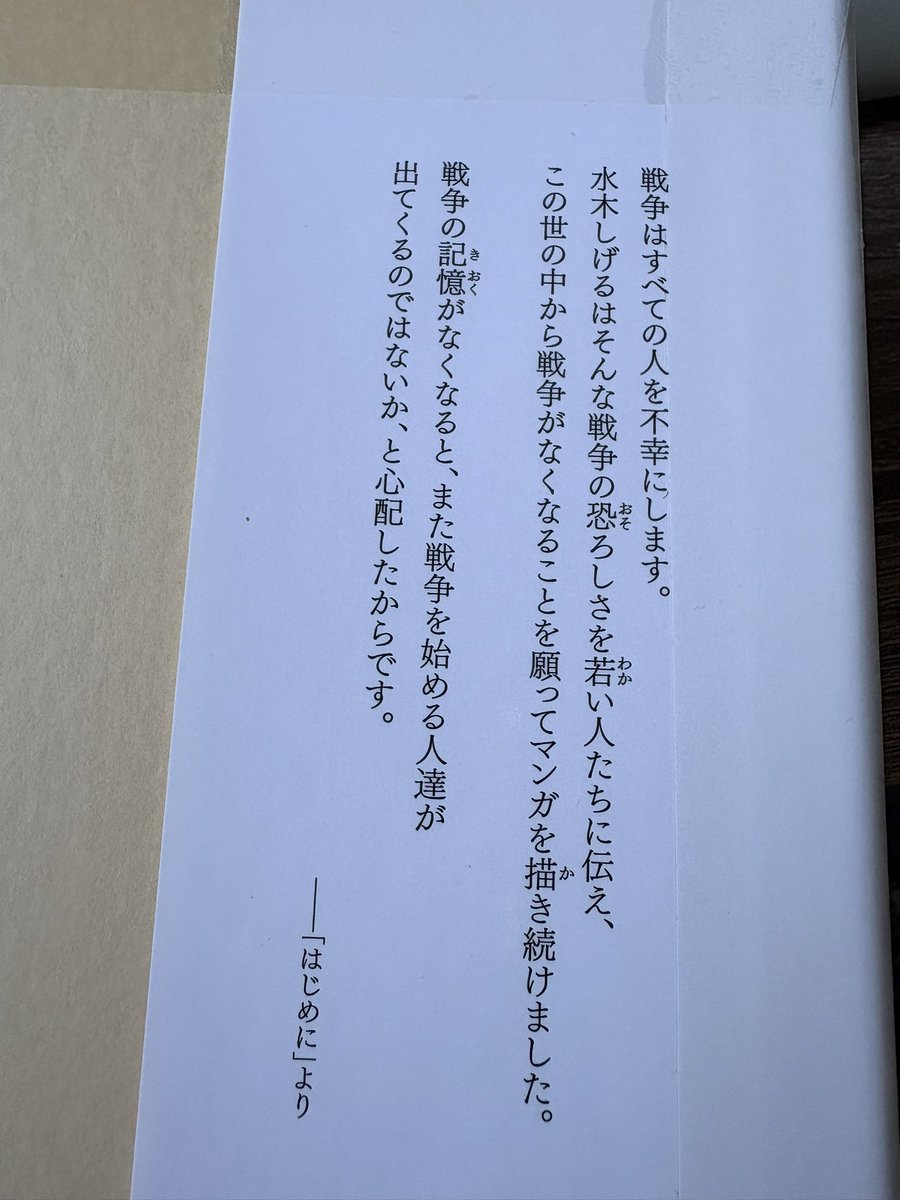 戦争はすべての人を不幸にします。
水木しげるはそんな戦争の恐ろしさを若い人たちに伝え、
この世の中から戦争がなくなることを願ってマンガを描き続けました。
戦争の記憶がなくなると、また戦争を始める人達が
出てくるのではないか、と心配したからです。
──「はじめに」より